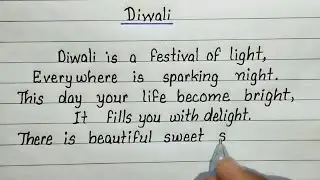 Diwali
Diwali is a festival of light,
Everywhere is sparking night.
This day your life become bright,
It fills you with delight.
There is beautiful sweet s